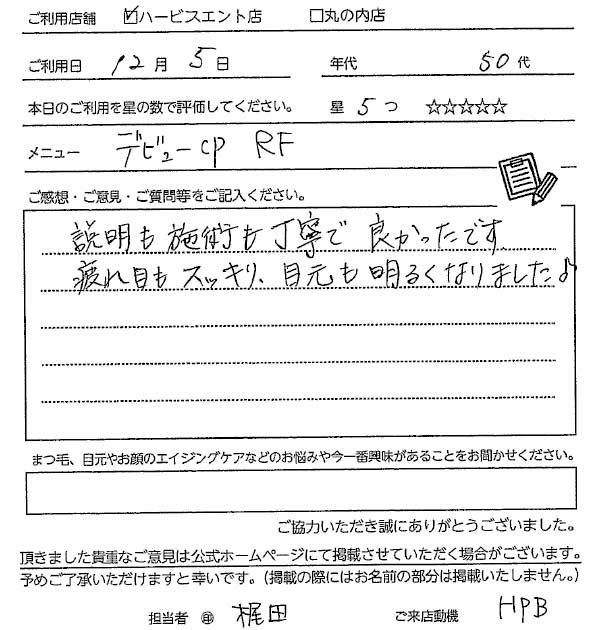 ご利用店舗 ☑ハービスエント店 □丸の内店
ご利用日 12月 5日 年代 50代
本日のご利用を星の数で評価してください。 星 5つ ☆☆☆☆☆
メニュー デビューcp RF
ご感想・ご意見・ご質問等をご記入ください。
説明も施術も丁寧で良かったです
疲れ目もスッキリ、目元も明るくなりました♪
まつ毛、目元やお顔のエイジングケアなどのお悩みや今一番興味があることをお聞かせください。
ご協力いただき誠にありがとうございました。
頂きました貴重なご意見は公式ホームページにて掲載させていただく場合がございます。
予めご了承いただけますと幸いです。(掲載の際にはお名前の部分は掲載いたしません。)
担当者 ㊞ 梶田 ご来店動機 HPB